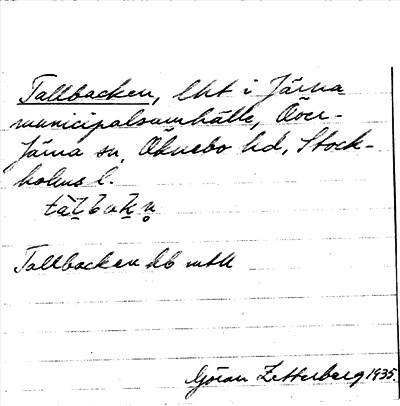 Tallbacken, lht i Järna
municipalsamhälle, Över-
Järna sn, Öknebo hd, Stock-
holms l.
Tallbacken
Göran Zetterberg 1935.